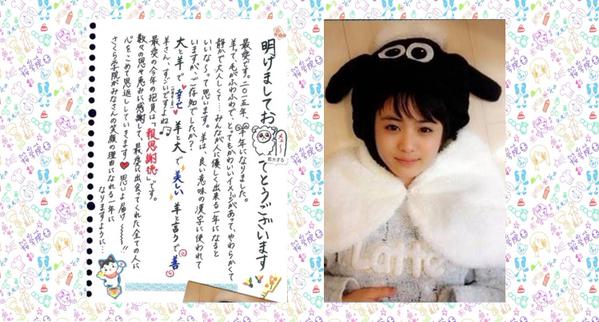 明けましておめでとうございます
最愛です。二〇一五年、羊年になりました。
羊って、毛がふわふわで、とってもかわいいイメージがあって、やわらかくて
静かで大人しくて…みんなが人に優しく出来る一年になると
いいな〜って思います。羊は、良い意味の漢字に使われて
いますが、ご存知でしたか?
大と羊で 幸せ 羊と大で 美しい 羊と言うで 善
羊さん、すごいですよね♫
最愛の今年の抱負は、「報恩謝徳」です。
数々の恩や恵みに感謝して、最愛に出会ってくれた全ての人に
心をこめて恩返ししていきます♥思いよ届け〜〜〜!!
さくら学院がみなさんの笑顔の理由になれる一年に
なりますように…
Latte